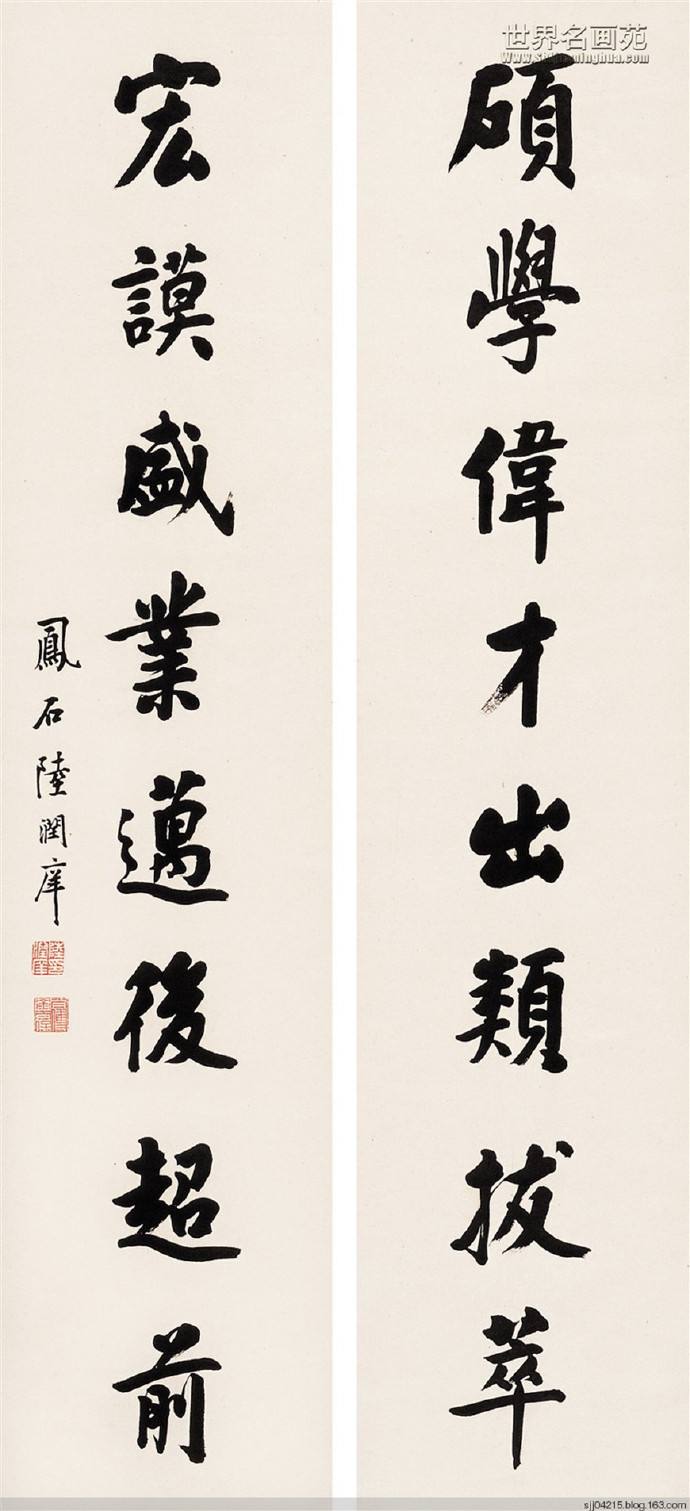 世界名画苑
碩學偉才出類拔萃
宏謨盛業邁後超前
鳳石陸潤庠
sjj04215.blog.163.com